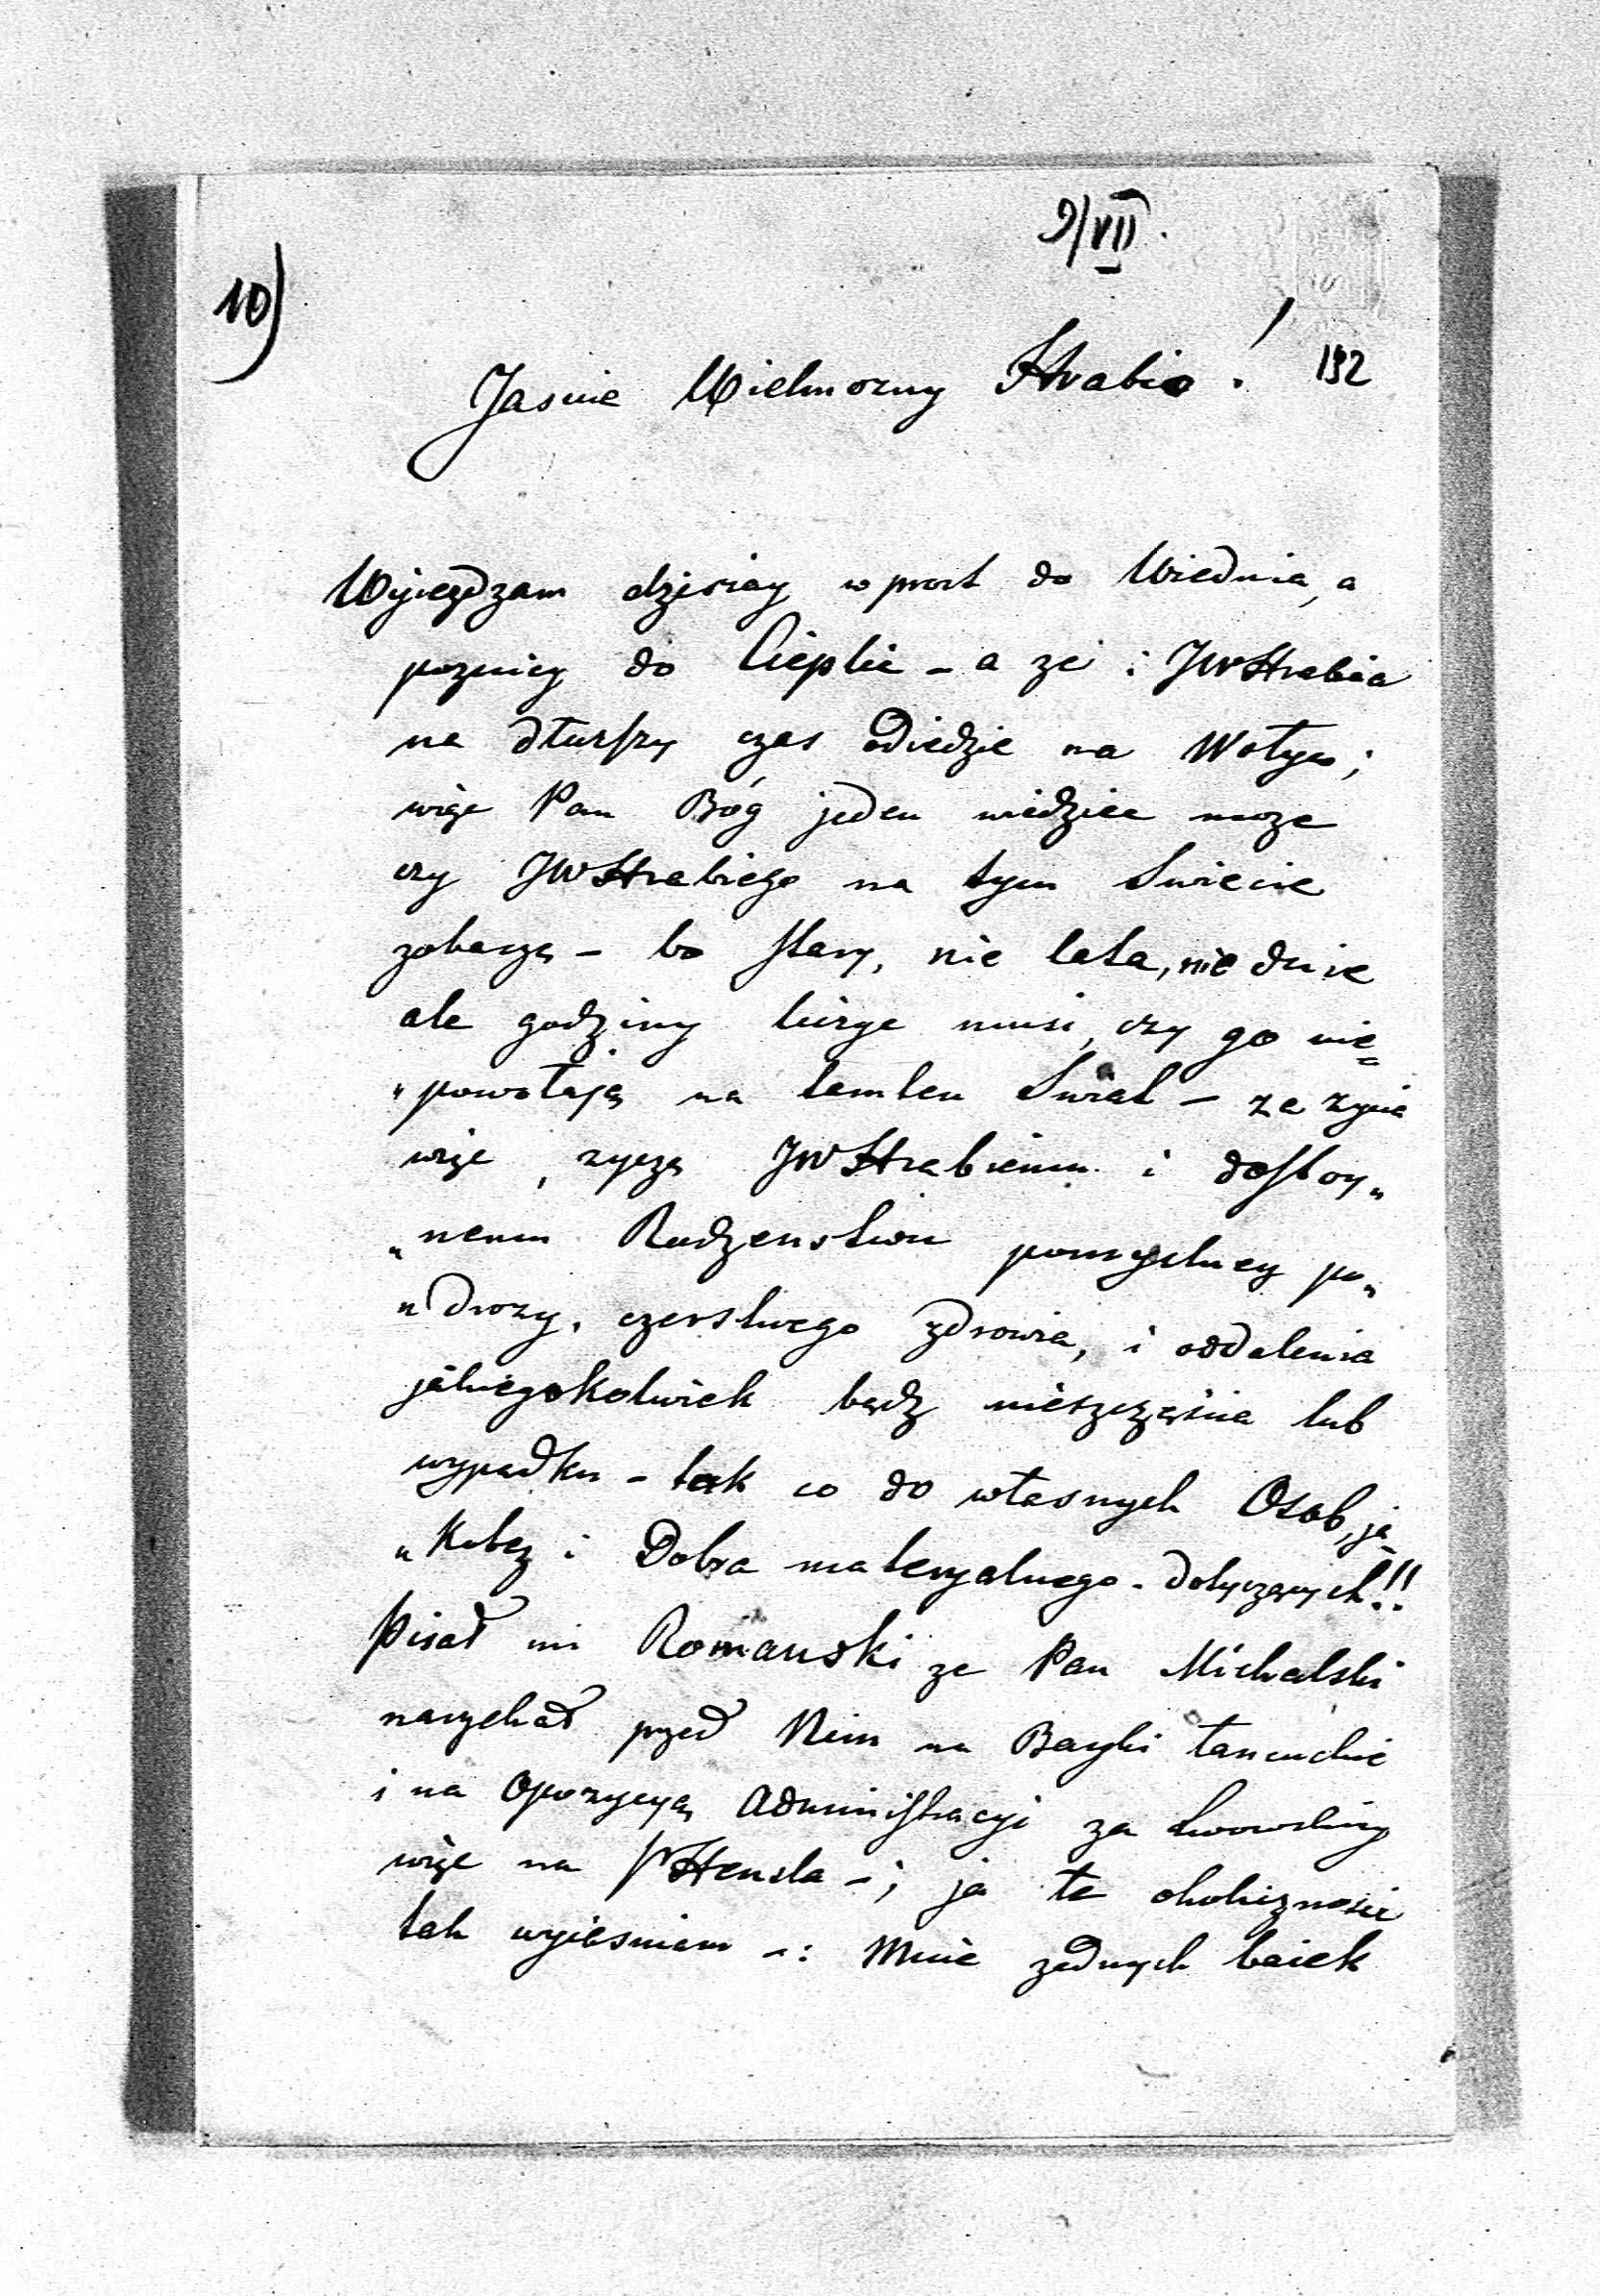 9/VII.
10)
192
Jasnie Wielmozny Hrabio!
Wyiezdzam dzisiay wprost do Wiednia, a
pozniey do Cieplic - a ze i JWHrabia
na dłuższy czas odiedzie na Wołyn;
więc Pan Bóg jeden wiedziec moze
czy JWHrabiego na tym Swiecie
zobaczę - bo stary, nie lata, nie dnie
ale godziny liczyc musi, czy go nie=
"powołają na tamten Swiat - za zycia
więc, zyczę JWHrabiemu i dostoy"
"nemu Rodzenstwu pomyslney po"
"drozy, czerstwego zdrowia, i oddalenia
jakiegokolwiek bądz nieszczęscia lub
wypadku - tak co do własnych Osob, ja"
"kotez i Dobra materyalnego dotyczących!!
Pisał mi Romanski ze Pan Michalski
narzekał przed Nim na Bayki łancuckie
i na Opozycyą Administracyi za Lwowskiey
więc na PHensla -; ja te okolicznosci
tak wyiasniam -: Mnie zadnych baiek